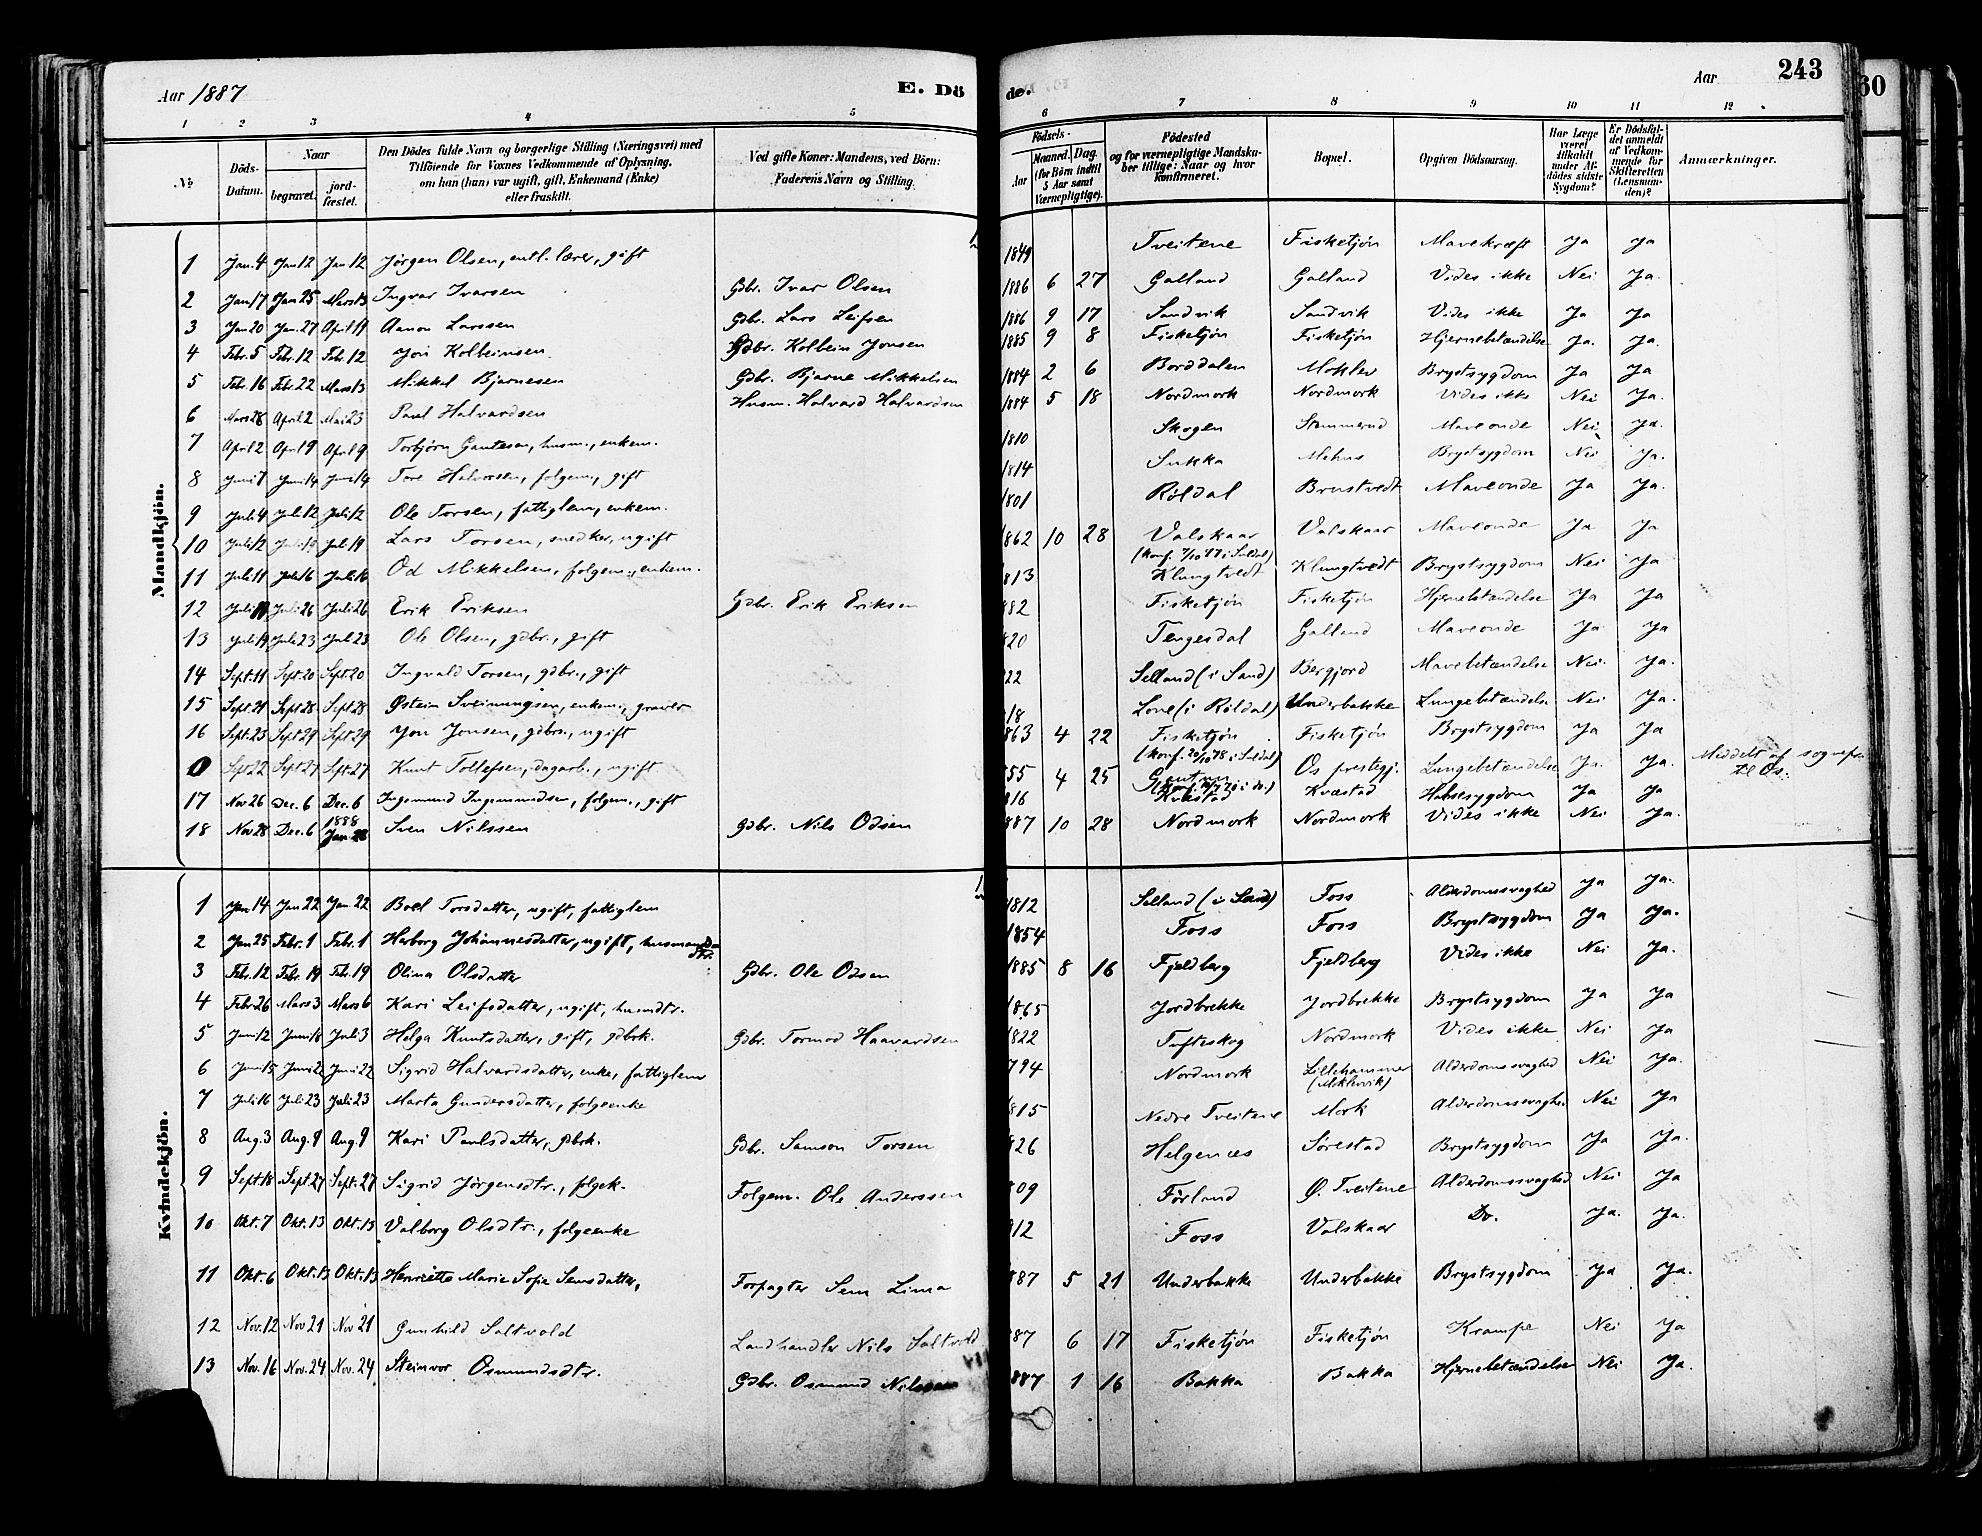 Aar 1887
E. Dö
de.
Aar
243
60
1 2 3 4 5 6 7 8 9 10 11 12
No
Döds-Datum.
Naar
begravet.
jord-fæstet.
Den Dödes fulde Navn og borgerlige Stilling (Næringsvei) med
Tilföiende for Voxnes Vedkommende af Oplysning,
om han (hun) var ugift, gift, Enkemand (Enke)
eller fraskilt.
Ved gifte Koner: Mandens, ved Börn:
Faderens Navn og Stilling.
Födsels-
Aar
Maaned. Dag.
(for Börn indtil
5 Aar samt
Værnepligtige).
Födested
og for værnepligtige Mandska-
ber tillige: Naar og hvor
konfirmeret.
Bopæl.
Opgiven Dödsaarsag.
Har Læge
været
tilkaldt
under Af-
dödes sidste
Sygdom?
Er Dödsfal-
det anmeldt
af Vedkom-
mende for
Skifteretten
(Lensman-
den)?
Anmærkninger.
Mandkjön.
1 Jan. 4 Jan 12 Jan 12 Jørgen Olsen, entl. lærer, gift 1849 Tveitene Fisketjøn Mavekræft Ja Ja
2 Jan 17 Jan 25 Mars 13 Ingvar Ivarsen Gdbr. Ivar Olsen 1886 6 27 Galland Galland Vides ikke Nei Ja.
3 Jan 20 Jan. 27 April 19 Aanon Larssen Gdbr. Lars Leifsen 1886 9 17 Sandvik Sandvik Vides ikke Ja Ja
4 Febr. 5 Febr. 12 Febr. 12 Jon Kolbeinsen Gdbr. Kolbein Jonsen 1885 9 8 Fisketjøn Fisketjøn Hjernebetændelse Ja. Ja.
5 Febr. 16 Febr. 22 Mars 13 Mikkel Bjarnesen Gdbr. Bjarne Mikkelsen 1884 2 6 Borddalen Moklev Brystsygdom Ja Ja
6 Mars 28 April 2 Mai 23 Paul Halvardsen Husm. Halvard Halvardsen 1884 5 18 Nordmork Nordmork Vides ikke Nei Ja.
7 April 2 April 9 April 9 Torbjørn Gautesen, husm., enkem. 1810 Skogen Stemmerud Maveonde Nei Ja.
8 Juni 7 Juni 14 Juni 14 Tore Halvorsen, folgem., gift 1814 Sukka Mehus Brystsygdom Nei Ja.
9 Juli 4 Juli 12 Juli 12 Ole Torsen, fattiglem, enkem. 1801 Røldal Brustvedt Maveonde Ja Ja.
10 Juli 12 Juli 19 Juli 19 Lars Torsen, snedker, ugift 1862 10 28 Valskaar Valskaar Maveonde Ja Ja
(konf. 7/10 77 i Suldal)
11 Juli 11 Juli 16 Juli 16 Od Mikkelsen, folgem., enkem. 1813 Klungtvedt Klungtvedt Brystsygdom Nei Ja
12 Juli Juli 26 Juli 26 Erik Eriksen Gdbr. Erik Eriksen 882 Fisketjøn Fisketjøn Hjernebetændelse Ja Ja
13 Juli 19 Juli 23 Juli 23 Ole Olsen, gdbr., gift 820 Tengesdal Galland Maveonde Ja Ja
14 Sept. 11 Sept. 20 Sept. 20 Ingvald Torsen, gdbr., gift 22 Selland (i Sand) Bergjord Mavebetændelse Nei. Ja.
15 Sept. 21 Sept 28 Sept 28 Østein Sveinungsen, enkem., graver 18 Lone (i Røldal) Underbakke Lungebetændelse Nei Ja.
16 Sept. 23 Sept. 29 Sept. 29 Jon Jonsen, gdbrs., ugift 863 4 22 Fisketjøn Fisketjøn Brystsygdom Ja Ja
(konf. 20/10 78 i Suldal)
0 Sept 22 Sept 27 Sept. 27 Knut Tollefsen, dagarb., ugift 55 4 25 Os prestegj. Lungebetændelse Ja. Ja. Meddelt af sognepr. til Os.
17 Nov 26 Dec. 6 Dec. 6 Ingemund Ingemundsen, folgem., gift 816 Kvæstad Kvæstad Halsesygdom Ja Ja
18 Nov 28 Dec. 6 1888 Jan 28 Sven Nilssen Gdbr. Nils Odsen 887 10 28 Nordmork Nordmork Vides ikke Nei Ja.
Kvindekjön.
1 Jan 14 Jan 22 Jan 22 Boel Torsdatter, ugift, fattiglem 1812 Selland (i Sand) Foss Alderdomssvaghed Ja Ja.
2 Jan 25 Febr. 1 Febr. 1 Herborg Johannesdatter, ugift, husmandsdtr. 1854 Foss Foss Brystsygdom Ja Ja.
3 Febr. 12 Febr. 19 Febr. 19 Olina Olsdatter Gdbr. Ole Odsen 1885 8 16 Fjeldberg Fjeldberg Vides ikke Nei Ja.
4 Febr. 26 Mars 3 Mars 6 Kari Leifsdatter, ugift, husmdtr. 1865 Jordbrekke Jordbrekke Brystsygdom Ja Ja
5 Juni 12 Juni 18 Juli 3 Helga Knutsdatter, gift, gdbrk. Gdbr. Tormod Haavardsen 1822 Tufteskog Nordmork Vides ikke Nei Ja
6 Juni 15 Juni 22 Juni 22 Sigrid Halvardsdatter, enke, fattiglem 794 Nordmork Lillehammer Alderdomssvaghed Nei Ja.
(Moklevik)
7 Juli 16 Juli 23 Juli 23 Marta Gundersdatter, folgeenke 815 Nedre Tveitene Mork Alderdomssvaghed Nei Ja
8 Aug. 3 Aug. 9 Aug. 9 Kari Paulsdatter, gdbrk. Gdbr. Samson Torsen 826 Helgenæs Sørestad Brystsygdom Ja Ja.
9 Sept. 18 Sept. 27 Sept. 27 Sigrid Jørgensdtr., folgek. Folgem. Ole Anderssen 809 Førland Ø. Tveitene Alderdomssvaghed Nei Ja
10 Okt. 7 Okt. 13 Okt. 13 Valborg Olsdtr., folgeenke 812 Foss Valskaar Do. Ja. Ja.
11 Okt. 6 Okt. 13 Okt. 13 Henriette Marie Sofie Semsdatter, Forpagter Sem Lima 887 5 21 Underbakke Underbakke Brystsygdom Ja Ja.
12 Nov. 12 Nov 21 Nov 21 Gunhild Saltvold Landhandler Nils Saltvold 87 6 17 Fisketjøn Fisketjøn Krampe Nei Ja
13 Nov. 16 Nov. 24 Nov. 24 Steinvor Osmundsdtr. Gdbr. Osmund Nilssen 887 1 16 Bakka Bakka Hjernebetændelse Nei Ja.